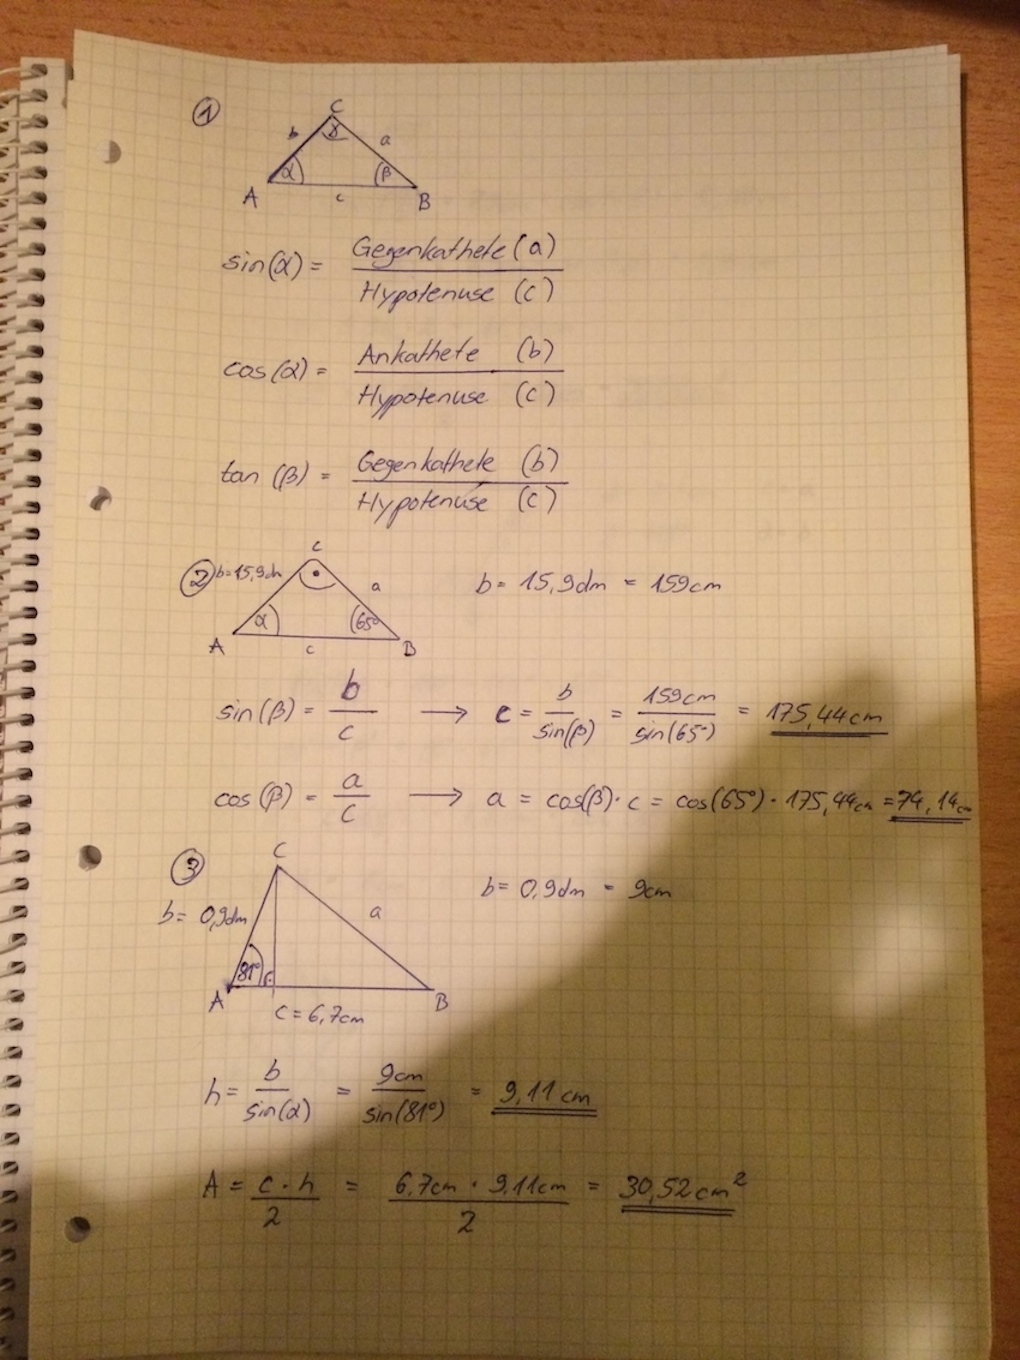 ① C
b γ a
α β
A c B
sin(α) = Gegenkathete (a) / Hypotenuse (c)
cos(α) = Ankathete (b) / Hypotenuse (c)
tan(β) = Gegenkathete (b) / Hypotenuse (c)
② C
b=15,9dm a b = 15,9dm = 159cm
α 65°
A c B
sin(β) = b / c → c = b / sin(β) = 159cm / sin(65°) = 175,44cm
cos(β) = a / c → a = cos(β) · c = cos(65°) · 175,44cm = 74,14cm
③ C
b = 0,9dm a b = 0,9dm = 9cm
81°
A B
c = 6,7cm
h = b / sin(α) = 9cm / sin(81°) = 9,11cm
A = c · h / 2 = 6,7cm · 9,11cm / 2 = 30,52cm²